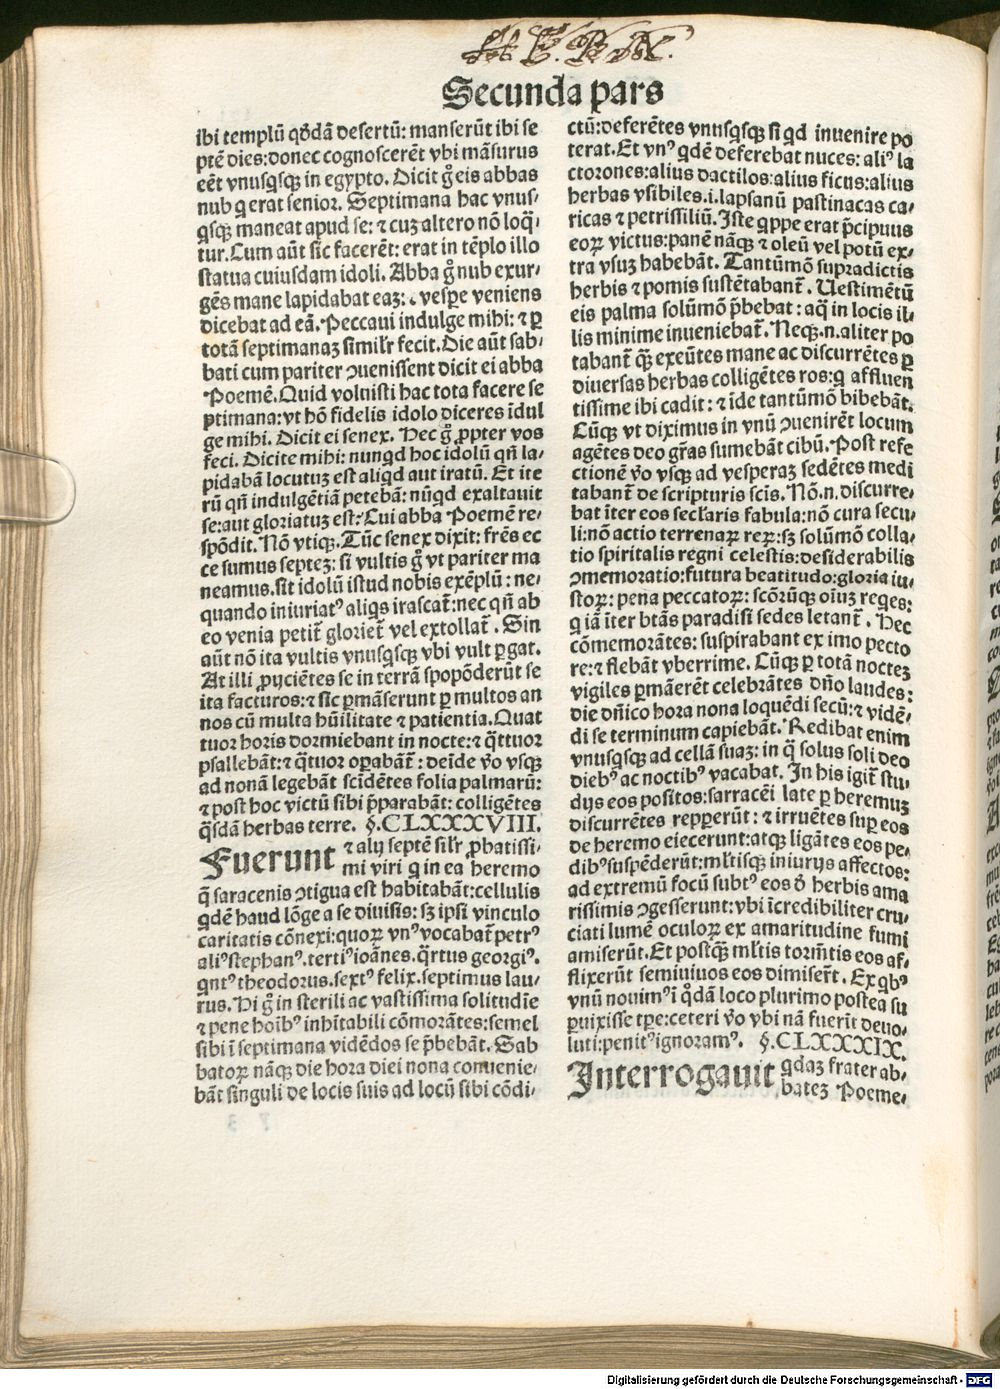 Secunda pars
ibi templũ qđdã desertũ: manserũt ibi se
ptẽ dies: donec cognoscerẽt vbi mãsurus
eẽt vnusqsqꝫ in egypto. Dicit g̊ eis abbas
nub q erat senior. Septimana hac vnus-
qsqꝫ maneat apud se: ⁊ cuꝫ altero nõ loq̃-
tur. Cum aũt sic facerẽt: erat in tẽplo illo
statua cuiusdam idoli. Abba g̊ nub exur-
gẽs mane lapidabat eaꝫ: vespe veniens
dicebat ad eã. Peccaui indulge mihi: ⁊ ꝑ
totã septimanaꝫ similr fecit. Die aũt sab-
bati cum pariter ↄuenissent dicit ei abba
Poemẽ. Quid voluisti hac tota facere se
ptimana: vt hõ fidelis idolo diceres ĩdul
ge mihi. Dicit ei senex. Hec g̊ ꝓpter vos
feci. Dicite mihi: nunqd hoc idolũ qñ la-
pidabã locutuꝫ est aliqd aut iratũ. Et ite
rũ qñ indulgẽtiã petebã: nũqd exaltauit
se: aut gloriatuꝫ est: Cui abba Poemẽ re-
spõdit. Nõ vtiqꝫ. Tũc senex dixit: frẽs ec
ce sumus septeꝫ: si vultis g̊ vt pariter ma
neamus. sit idolũ istud nobis exẽplũ: ne-
quando iniuriatꝰ aliqs irascat̃: nec qñ ab
eo venia petit̃ gloriet̃ vel extollat̃. Sin
aũt nõ ita vultis vnusqsqꝫ vbi vult ꝑgat.
At illi ꝓijciẽtes se in terrã spopõderũt se
ita facturos: ⁊ sic ꝑmãserunt ꝑ multos an
nos cũ multa hũilitate ⁊ patientia. Quat
tuor horis dormiebant in nocte: ⁊ q̃ttuor
psallebãt: ⁊ q̃tuor oꝑabãt̃: deĩde ṽo vsqꝫ
ad nonã legebãt scĩdẽtes folia palmarũ:
⁊ post hoc victũ sibi p̃parabãt: colligẽtes
q̃sdã herbas terre. §. CLXXXVIII.
Fuerunt ⁊ alij septẽ silr ꝓbatissi-
mi viri q in ea heremo
q̃ saracenis ↄtigua est habitabãt: cellulis
qdẽ haud lõge a se diuisis: sꝫ ipsi vinculo
caritatis cõnexi: quoꝝ vnꝰ vocabat̃ petrꝰ
aliꝰ stephanꝰ. tertiꝰ ioãnes. q̃rtus georgiꝰ.
qntꝰ theodorus. sextꝰ felix. septimus lau-
rus. Hi g̊ in sterili ac vastissima solitudĩe
⁊ pene hoĩbꝰ inhĩtabili cõmorãtes: semel
sibi ĩ septimana vidẽdos se p̃bebãt. Sab
batoꝝ nãqꝫ die hora diei nona conuenie-
bãt singuli de locis suis ad locũ sibi cõdi-
ctũ: deferẽtes vnusqsqꝫ si qd inuenire po
terat. Et vnꝰ qdẽ deferebat nuces: aliꝰ la
ctorones: alius dactilos: alius ficus: alius
herbas vsibiles .i. lapsanũ pastinacas ca-
ricas ⁊ petrissiliũ. Iste qppe erat p̃cipuus
eoꝝ victus: panẽ nãqꝫ ⁊ oleũ vel potũ ex-
tra vsuꝫ habebãt. Tantũmõ supradictis
herbis ⁊ pomis sustẽtabant̃. Uestimẽtũ
eis palma solũmõ p̃bebat: aq̃ in locis il-
lis minime inueniebat̃. Neqꝫ .n. aliter po
tabant̃ q̃ꝫ exeũtes mane ac discurrẽtes ꝑ
diuersas herbas colligẽtes ros: q affluen
tissime ibi cadit: ⁊ ĩde tantũmõ bibebãt.
Cũqꝫ vt diximus in vnũ ↄuenirẽt locum
agẽtes deo gr̃as sumebãt cibũ. Post refe
ctionẽ ṽo vsqꝫ ad vesperaꝫ sedẽtes medi
tabant̃ de scripturis scĩs. Nõ .n. discurre-
bat ĩter eos seclaris fabula: nõ cura secu-
li: nõ actio terrenaꝝ reꝝ: sꝫ solũmõ colla-
tio spiritalis regni celestis: desiderabilis
ↄmemoratio: futura beatitudo: gloria iu-
stoꝝ: pena peccatoꝝ: scõrũqꝫ oĩuꝫ reges:
q iã ĩter btãs paradisi sedes letant̃. Hec
cõmemorãtes: suspirabant ex imo pecto
re: ⁊ flebãt vberrime. Cũqꝫ ꝑ totã nocteꝫ
vigiles ꝑmãerẽt celebrãtes dño laudes:
die dñico hora nona loquẽdi secũ: ⁊ vidẽ-
di se terminum capiebãt. Redibat enim
vnusqsqꝫ ad cellã suaꝫ: in q̃ solus soli deo
diebꝰ ac noctibꝰ vacabat. In his igit̃ stu-
dijs eos positos: sarracẽi late ꝑ heremuꝫ
discurrẽtes reꝑerũt: ⁊ irruẽtes suꝑ eos
de heremo eiecerunt: atqꝫ ligãtes eos pe-
dibꝰ suspẽderũt: ml̃tisqꝫ iniurijs affectos:
ad extremũ focũ subtꝰ eos đ herbis ama
rissimis ↄgesserunt: vbi ĩcredibiliter cru-
ciati lumẽ oculoꝝ ex amaritudine fumi
amiserũt. Et postqꝫ ml̃tis torm̃tis eos af-
flixerũt semiuiuos eos dimiser̃t. Ex qbꝰ
vnũ nouimꝰ ĩ q̃dã loco plurimo postea su
ꝑuixisse tpe: ceteri ṽo vbi nã fuerĩt deuo-
luti: penitꝰ ignoramꝰ. §. CLXXXIX.
Interrogauit qdaꝫ frater ab-
bateꝫ Poeme-
Digitalisierung gefördert durch die Deutsche Forschungsgemeinschaft - DFG